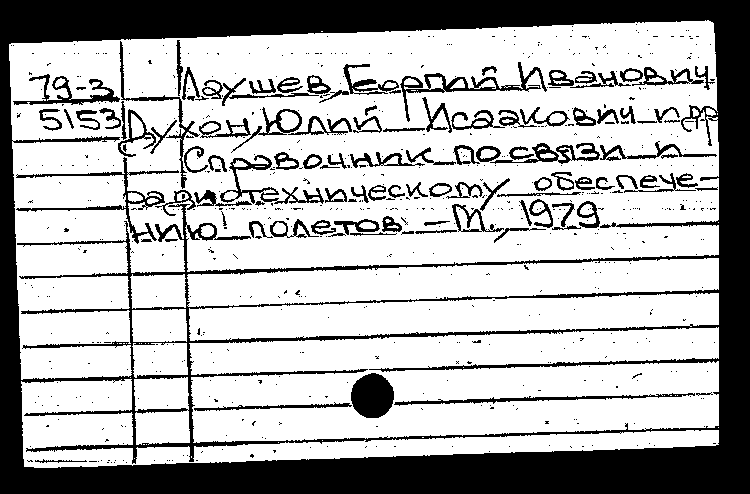 79-3 Лаушев, Георгий Иванович,
5153 Духон, Юлий Исаакович и др
Справочник по связи и
радиотехническому обеспече-
нию полетов. – М., 1979.